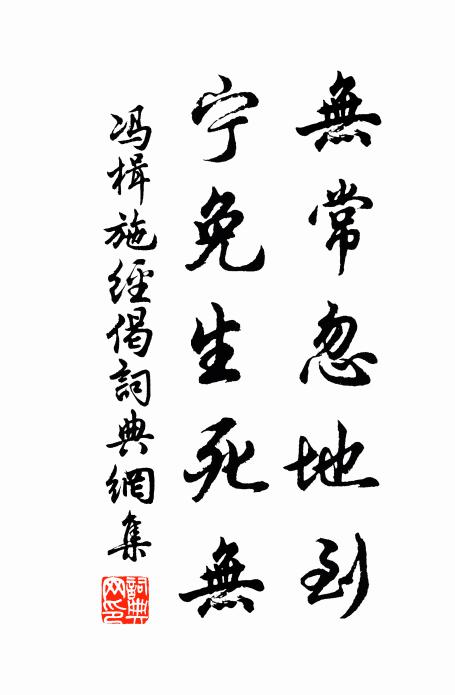 無常忽地到
宁免生死無
冯楫施經偈詞典網集
詞典
网印